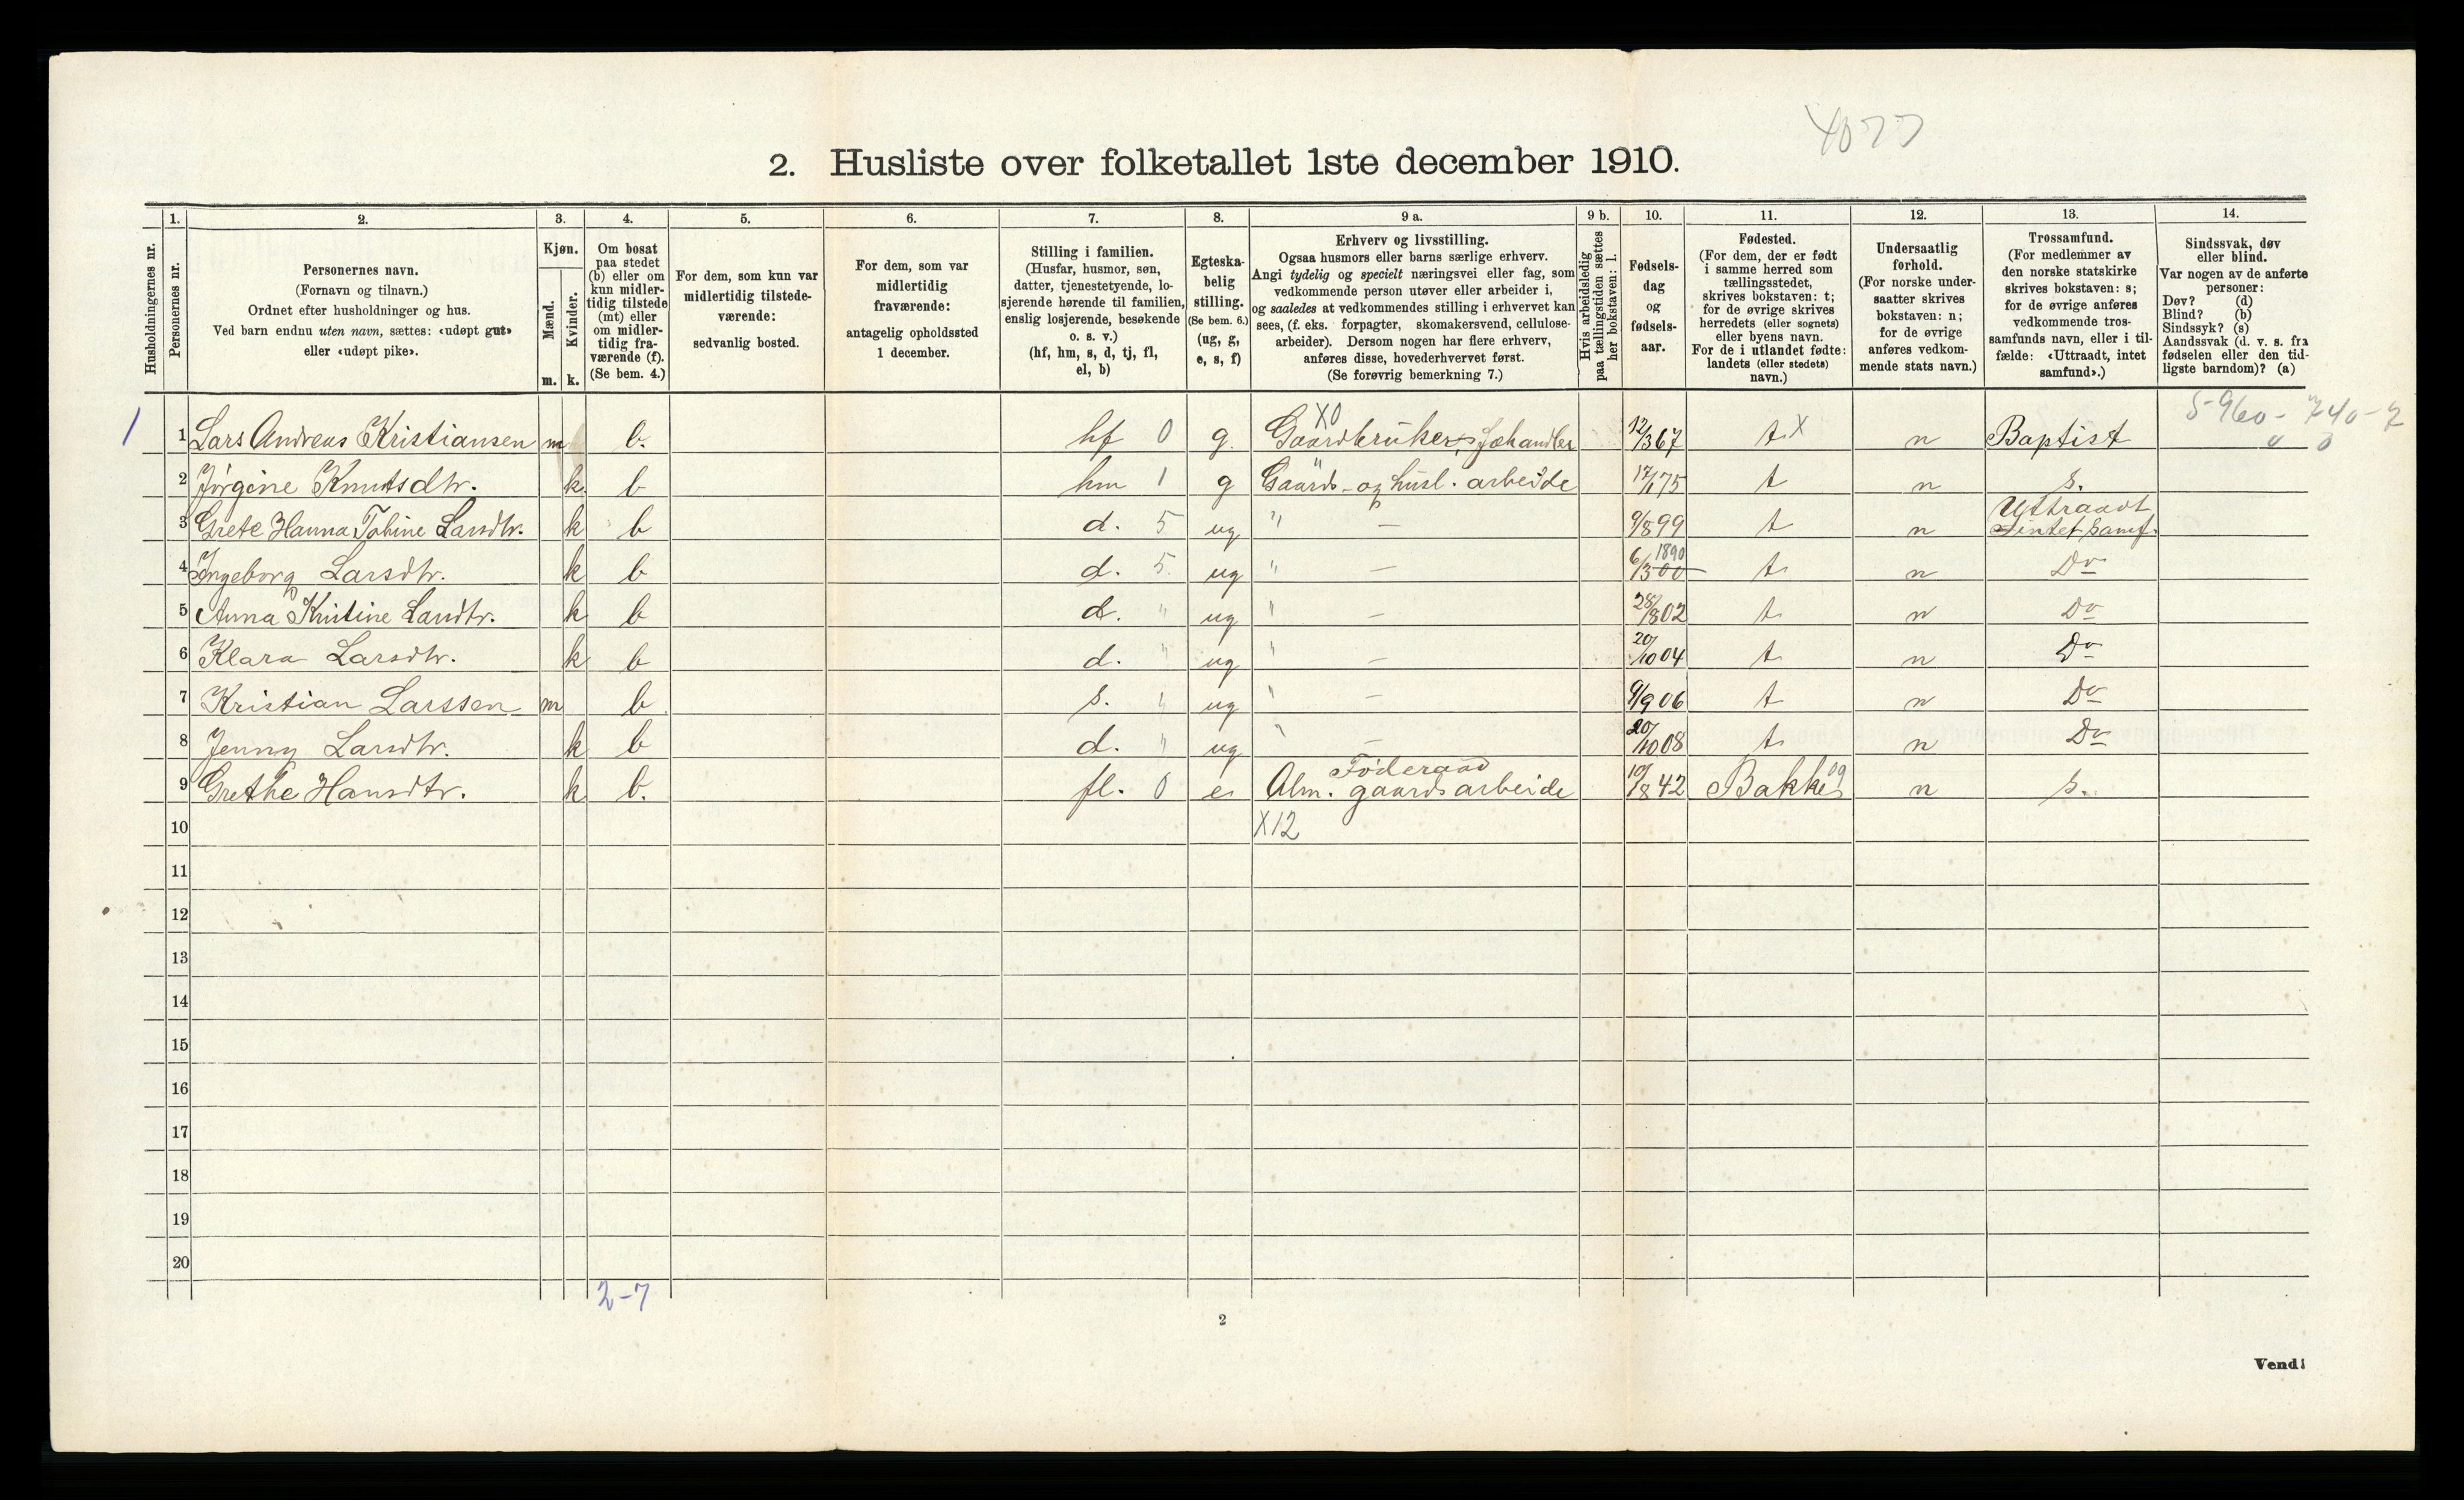 4077
2. Husliste over folketallet 1ste december 1910.
Husholdningernes nr.
1.
Personernes nr.
2.
Personernes navn.
(Fornavn og tilnavn.)
Ordnet efter husholdninger og hus.
Ved barn endnu uten navn, sættes: «udøpt gut»
eller «udøpt pike».
3.
Kjøn.
Mænd.
Kvinder.
m. k.
4.
Om bosat
paa stedet
(b) eller om
kun midler-
tidig tilstede
(mt) eller
om midler-
tidig fra-
værende (f).
(Se bem. 4.)
5.
For dem, som kun var
midlertidig tilstede-
værende:
sedvanlig bosted.
6.
For dem, som var
midlertidig
fraværende:
antagelig opholdssted
1 december.
7.
Stilling i familien.
(Husfar, husmor, søn,
datter, tjenestetyende, lo-
sjerende hørende til familien,
enslig losjerende, besøkende
o. s. v.)
(hf, hm, s, d, tj, fl,
el, b)
8.
Egteska-
belig
stilling.
(Se bem. 6.)
(ug, g,
e, s, f)
9 a.
Erhverv og livsstilling.
Ogsaa husmors eller barns særlige erhverv.
Angi tydelig og specielt næringsvei eller fag, som
vedkommende person utøver eller arbeider i,
og saaledes at vedkommendes stilling i erhvervet kan
sees, (f. eks. forpagter, skomakersvend, cellulose-
arbeider). Dersom nogen har flere erhverv,
anføres disse, hovederhvervet først.
(Se forøvrig bemerkning 7.)
9 b.
Hvis arbeidsledig
paa tællingstiden sættes
her bokstaven: l.
10.
Fødsels-
dag
og
fødsels-
aar.
11.
Fødested.
(For dem, der er født
i samme herred som
tællingsstedet,
skrives bokstaven: t;
for de øvrige skrives
herredets (eller sognets)
eller byens navn.
For de i utlandet fødte:
landets (eller stedets)
navn.)
12.
Undersaatlig
forhold.
(For norske under-
saatter skrives
bokstaven: n;
for de øvrige
anføres vedkom-
mende stats navn.)
13.
Trossamfund.
(For medlemmer av
den norske statskirke
skrives bokstaven: s;
for de øvrige anføres
vedkommende tros-
samfunds navn, eller i til-
fælde: «Uttraadt, intet
samfund».)
14.
Sindssvak, døv
eller blind.
Var nogen av de anførte
personer:
Døv? (d)
Blind? (b)
Sindssyk? (s)
Aandssvak (d. v. s. fra
fødselen eller den tid-
ligste barndom)? (a)
X0
1 1 Lars Andreas Kristiansen m b. hf 0 g. Gaardbruker, fæhandler 12/3 67 t X n Baptist
2 Jørgine Knutsdtr. k. b hm 1 g Gaards- og husl. arbeide 17/1 75 t n s.
3 Grete Hanna Tobine Larsdtr. k b d. 5 ug " — 9/8 99 t n Uttraadt
intet samf.
4 Ingeborg Larsdtr. k b d. 5. ug " — 6/3 00 1890 t n Do
5 Anna Kristine Larsdtr. k b d. " ug " — 28/8 02 t n Do
6 Klara Larsdtr. k b d. " ug " — 20/10 04 t n Do
7 Kristian Larssen m b s. " ug " — 9/9 06 t n Do
8 Jenny Larsdtr. k b d. " ug " — 20/10 08 t n Do
Føderaad
9 Grethe Hansdtr. k b. fl. 0 e Alm. gaardsarbeide 10/8 42 Bakke 09 n s.
10 X12
11
12
13
14
15
16
17
18
19
20
2-7
2
Vend!